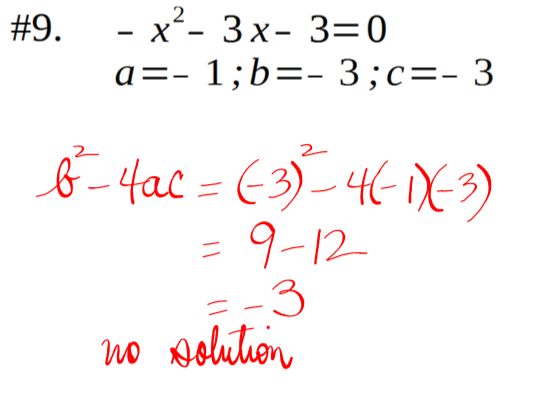 #9. - x²- 3x- 3=0
a=- 1;b=- 3;c=- 3
b²-4ac = (-3)²-4(-1)(-3)
= 9-12
= -3
no solution